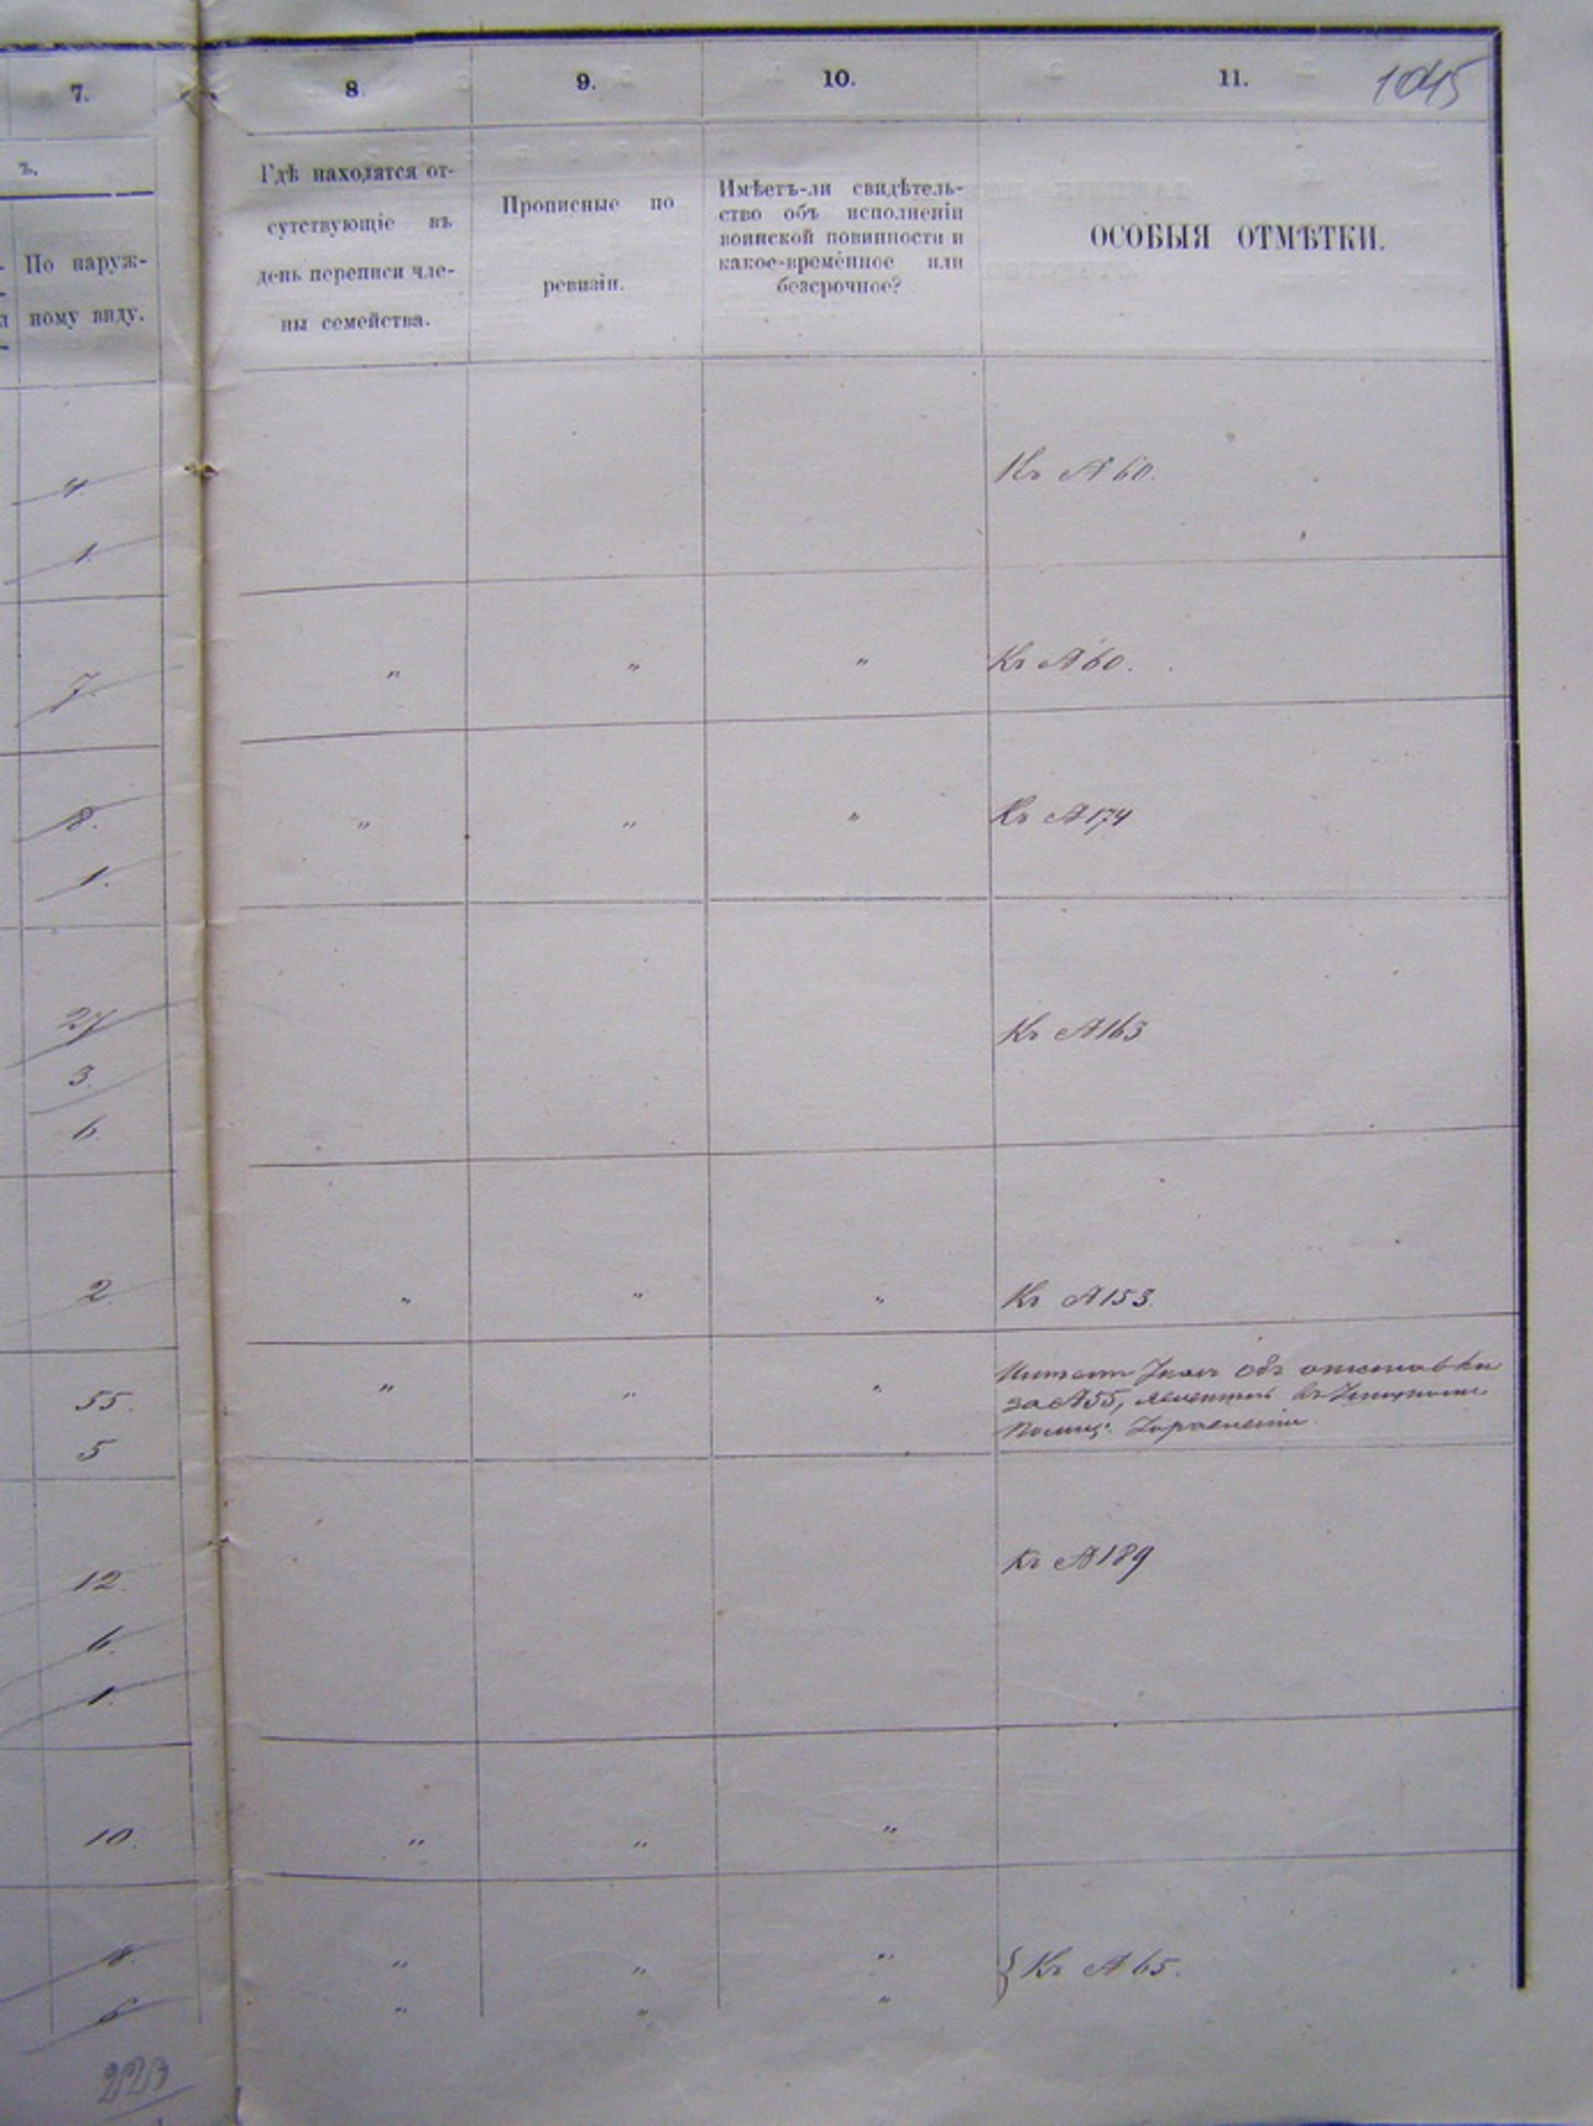 7.
8
9.
10.
11.
1045
ъ.
По наруж-
ному виду.
Гдѣ находятся от-
сутствующіе въ
день переписи чле-
ны семейства.
Прописные по
ревизіи.
Имѣетъ-ли свидѣтель-
ство объ исполненіи
воинской повинности и
какое-временное или
безсрочное?
ОСОБЫЯ ОТМѢТКИ.
4
Къ № 60.
1.
7. " " " Къ № 60.
8. " " " Къ № 174
1.
27
Къ № 163
3.
6
2. " " " Къ № 153.
55. " " "
объ отставки
за № 55, въ
Полиц. Управленіи.
5
12.
Къ № 189
6.
1.
10. " " "
8. " " " } Къ № 65.
6 " " "
223